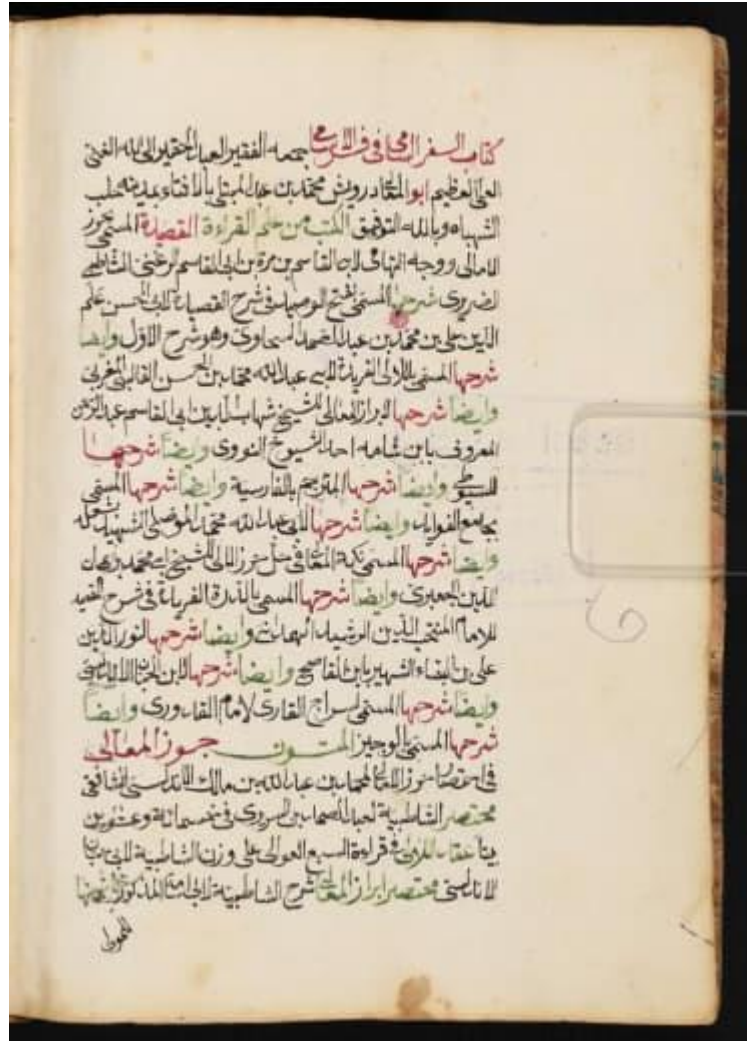 كتاب السفر السامي في الاسامي جمعه الفقير العبد الحقير الى الله الغني
العلي العظيم ابو المعالي درويش محمد بن عبد بالافتاء بمدينة حلب
الشهباء وبالله التوفيق الكتب من علم القراءة القصيدة المسمى بحرز
الاماني ووجه التهاني لابي القاسم بن فيرة بن ابي القاسم الرعيني الشاطبي
الضروى شرحها المسمى بفتح الوصيد في شرح القصيد لابي الحسن علم
الدين علي بن محمد بن عبد الصمد السخاوى وهو شرح الاول وايضا
شرحها المسمى باللالى الفريدة لابي عبد الله محمد بن الحسن المغربي
وايضا شرحها ابراز المعالى للشيخ شهاب الدين ابى القاسم عبد الرحمن
المعروف بابن شامه احد الشيوخ النووى وايضا شرحها
للسيوطي وايضا شرحها المترجم بالفارسية وايضا شرحها المسمى
بجامع الفوايد وايضا شرحها لابى عبد الله محمد الموصلى الشهيد بشعله
وايضا شرحها المسمى المعاني للشيخ ابي محمد برهان
الدين الجعبرى وايضا شرحها المسمى بالدرة الفريدة في شرح القصيد
للامام المنتجب الدين الرشيد الهمدانى وايضا شرحها النور الدين
على بن البقاء الشهير بابن القاصح وايضا شرحها لابن
وايضا شرحها المسمى سراج القارى لامام وايضا
شرحها المسمى بالوجيز المتون حوز المعالى
في اختصار حرز الامانى لمحمد بن عبد الله بن مالك الاندلسى الشافعى
مختصر الشاطبية لعبد الصمد بن في خمسمائة وعشرين
بيتا عقد اللالى في قراءة السبع العوالى على وزن الشاطبية لابى حيان
الاندلسى مختصر ابراز المعانى شرح الشاطبية لابى شامة المذكور